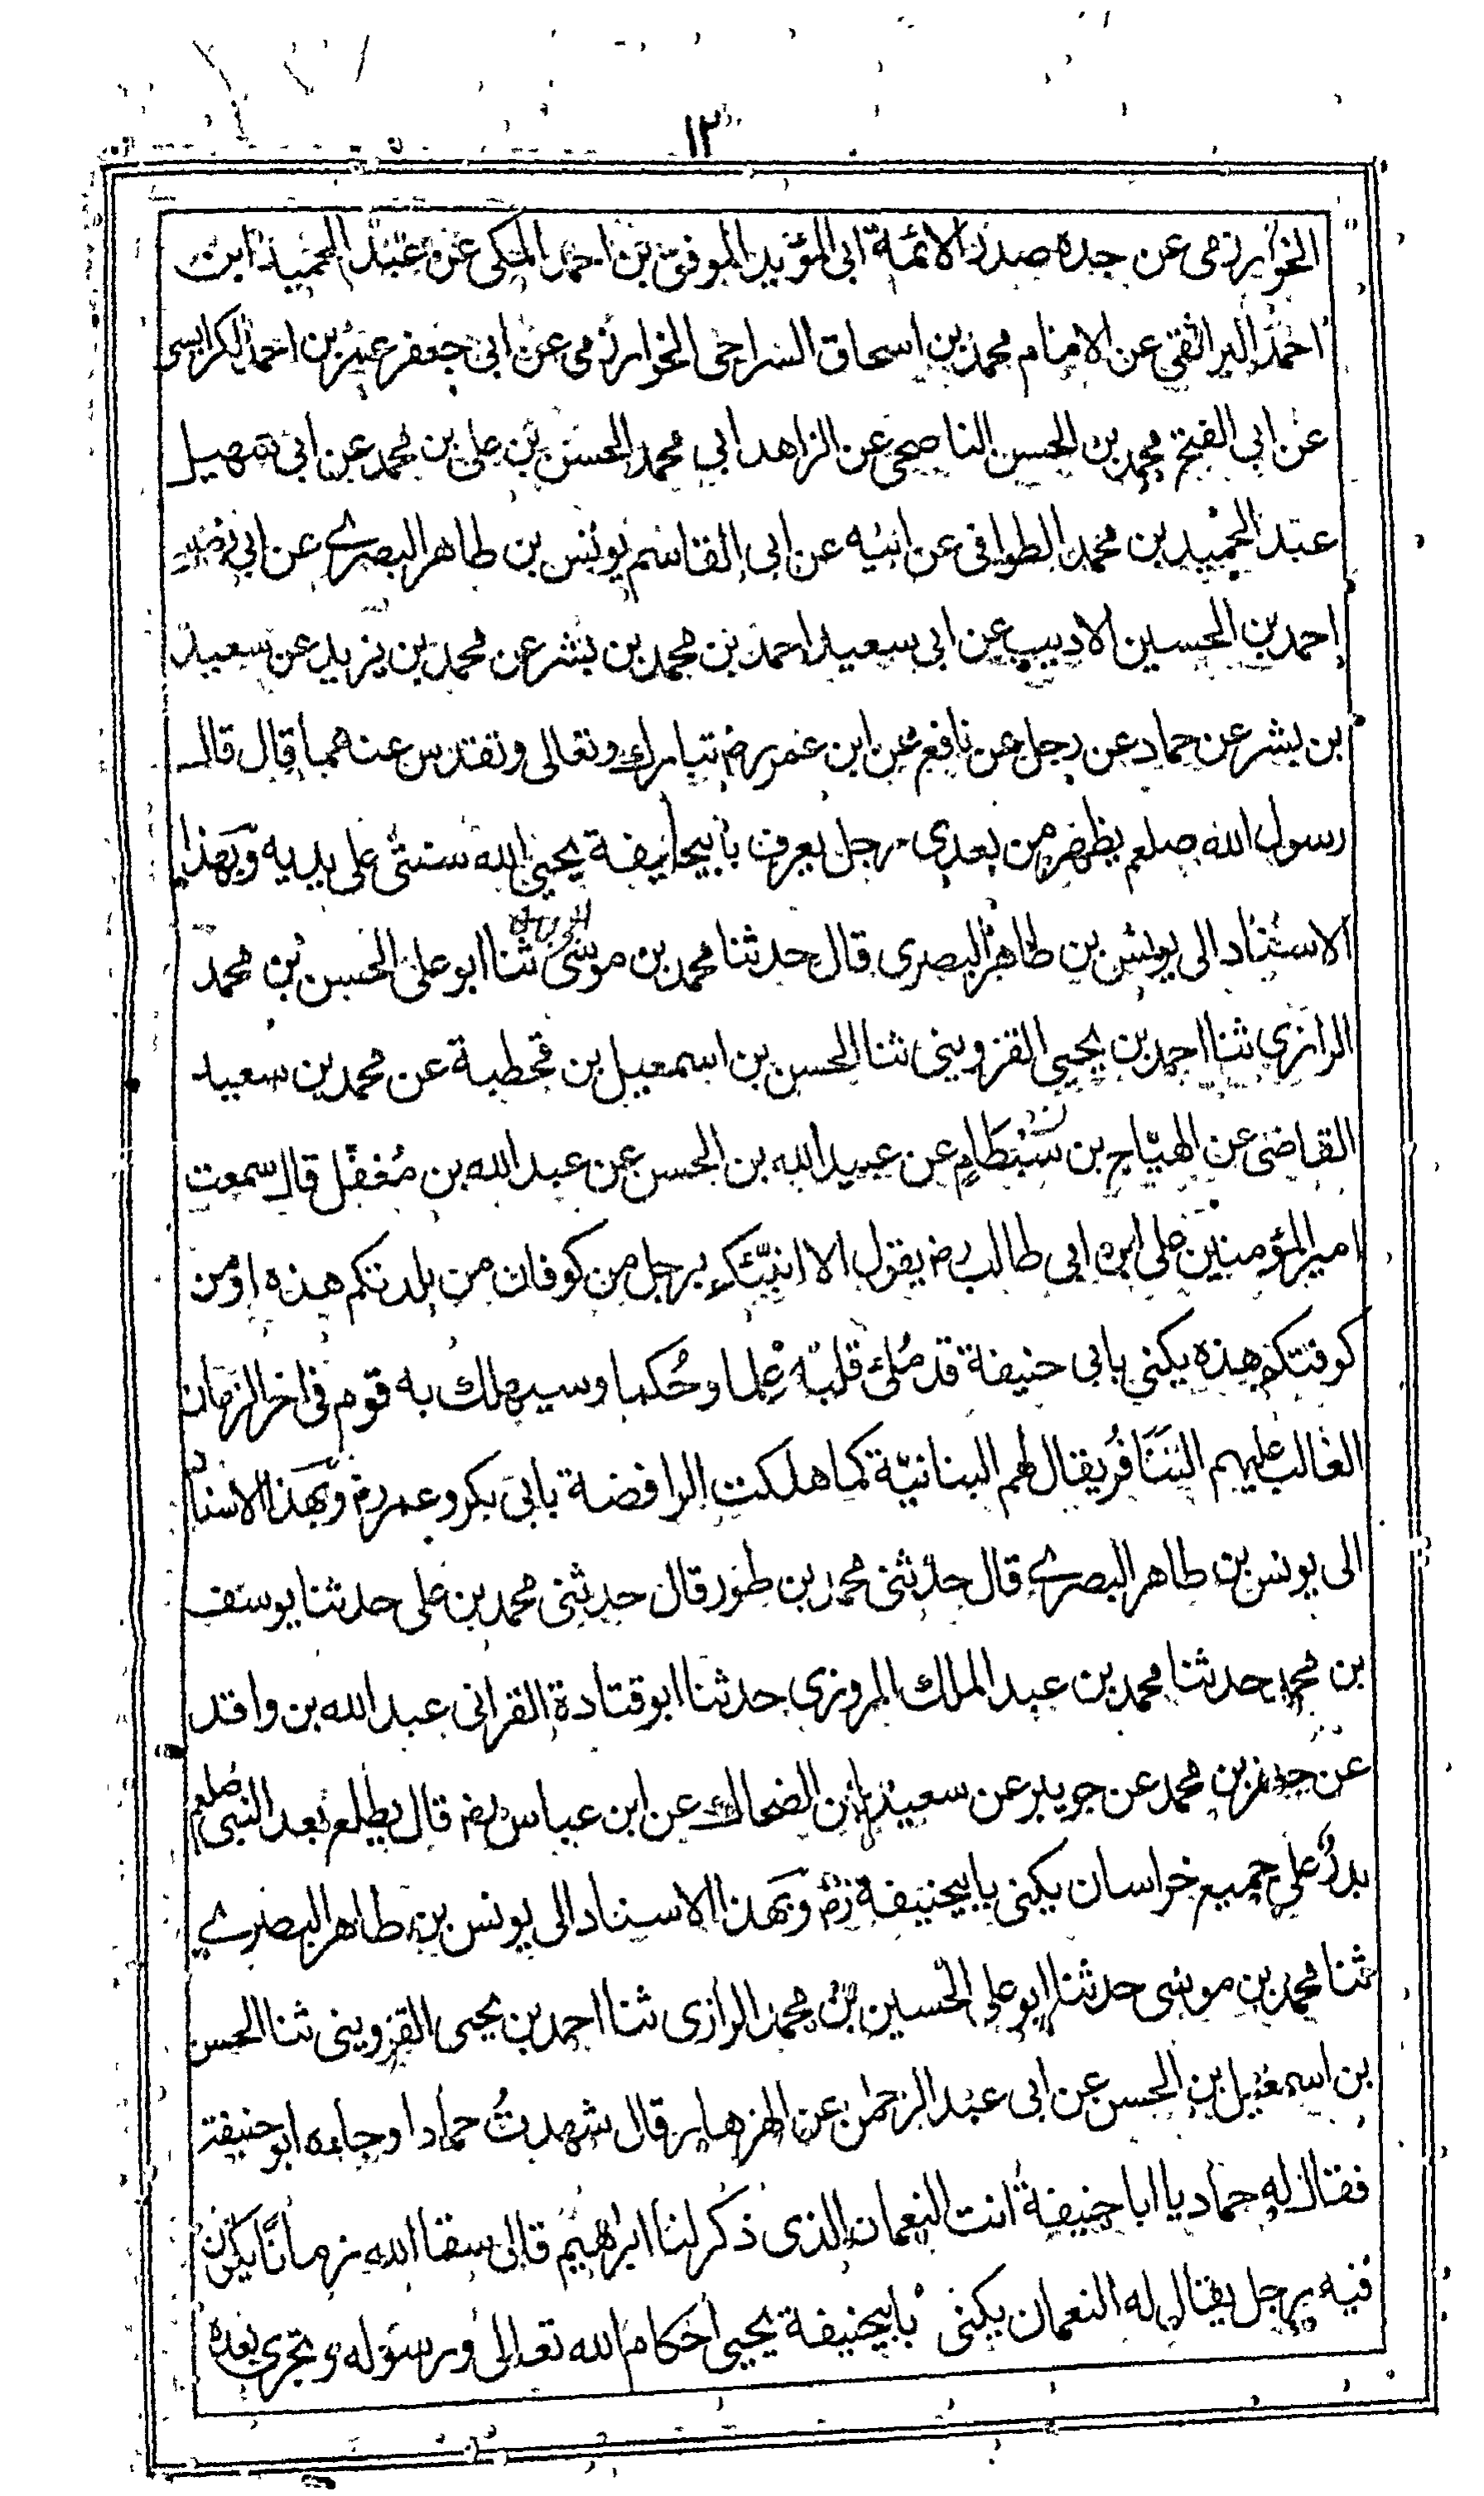 ١٢
الخوارزمى عن جده صدر الائمة ابى المؤيد الموفق بن احمد المكى عن عبد الحميد ابن
احمد البراتقى عن الامام محمد بن اسحاق السراجى الخوارزمى عن ابى جعفر عمر بن احمد الكرابيسى
عن ابى الفتح محمد بن الحسن الناصحى عن الزاهد ابى محمد الحسن بن على بن محمد عن ابى سهيل
عبد الحميد بن محمد الطوافى عن ابيه عن ابى القاسم يونس بن طاهر البصرے عن ابى نضر
احمد بن الحسين الاديب عن ابى سعيد احمد بن محمد بن بشر عن محمد بن يزيد عن سعيد
بن بشر عن حماد عن رجل عن نافع عن ابن عمر رضـ تبارك وتعالى وتقدس عنهما قال قال
رسول الله صلعم يظهر من بعدى رجل يعرف بابيحنيفة يحيى الله سنتى على يديه وبهذا
الاسناد الى يونس بن طاهر البصرى قال حدثنا محمد بن موسى ثنا ابو على الحسن بن محمد
الرازى ثنا احمد بن يحيى القزوينى ثنا الحسن بن اسمعيل بن قحطبة عن محمد بن سعيد
القاضى عن الهيّاج بن بسْطَامٍ عن عبيد الله بن الحسن عن عبد الله بن مُغفّل قال سمعت
امير المؤمنين على ابن ابى طالب رضـ يقول الا انبّئكم برجل من كوفان من بلدتكم هذه اومن
كوفتكم هذه يكنى بابى حنيفة قد مُلئ قلبُه عِلما وحُكما وسيهلك به قوم فى اخر الزمان
الغالب عليهم التَنَافُر يقال لهم البنانيّة كما هلكت الرافضة بابى بكر وعمر رضـ وبهذا الاسناد
الى يونس بن طاهر البصرے قال حدثنى محمد بن طور قال حدثنى محمد بن على حدثنا يوسف
بن محمد حدثنا محمد بن عبد الملك المروزى حدثنا ابو قتادة القرانى عبد الله بن واقد
عن جعفر بن محمد عن جويبر عن سعيد بن الضحاك عن ابن عباس رضـ قال يطلع بعد النبى صلعم
بدرٌ على جميع خراسان يكنى بابيحنيفة رضـ وبهذا الاسناد الى يونس بن طاهر البصرے
ثنا محمد بن موسى حدثنا ابو على الحسين بن محمد الرازى ثنا احمد بن يحيى القزوينى ثنا الحسن
بن اسمعيل بن الحسن عن ابى عبد الرحمن عن الهزهاز قال شهدتُ حمادا وجاءه ابو حنيفة
فقال له حماد يا ابا حنيفة انت النعمان الذى ذكر لنا ابراهيم قال سقا الله زمانًا يكون
فيه رجل يقال له النعمان يكنى بابيحنيفة يحيى احكام الله تعالى ورسوله وتجرى بعده